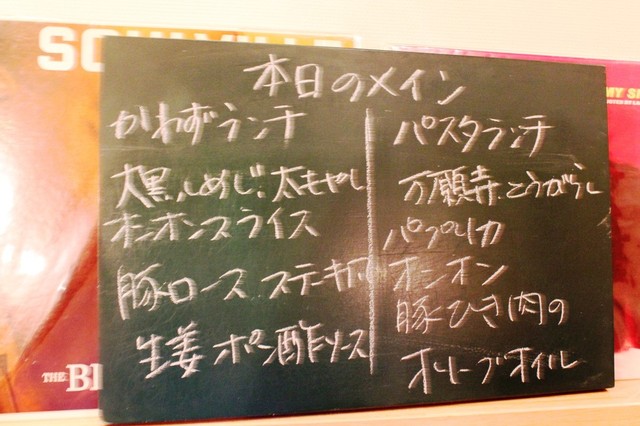 本日のメイン
かわずランチ
大黒しめじ、太もやし
オニオンスライス
豚ロース ステーキ
生姜 ポン酢ソース
パスタランチ
万願寺とうがらし
パプリカ
オニオン
豚ひき肉の
オリーブオイル
SOULVILLE
THE BI
MY S